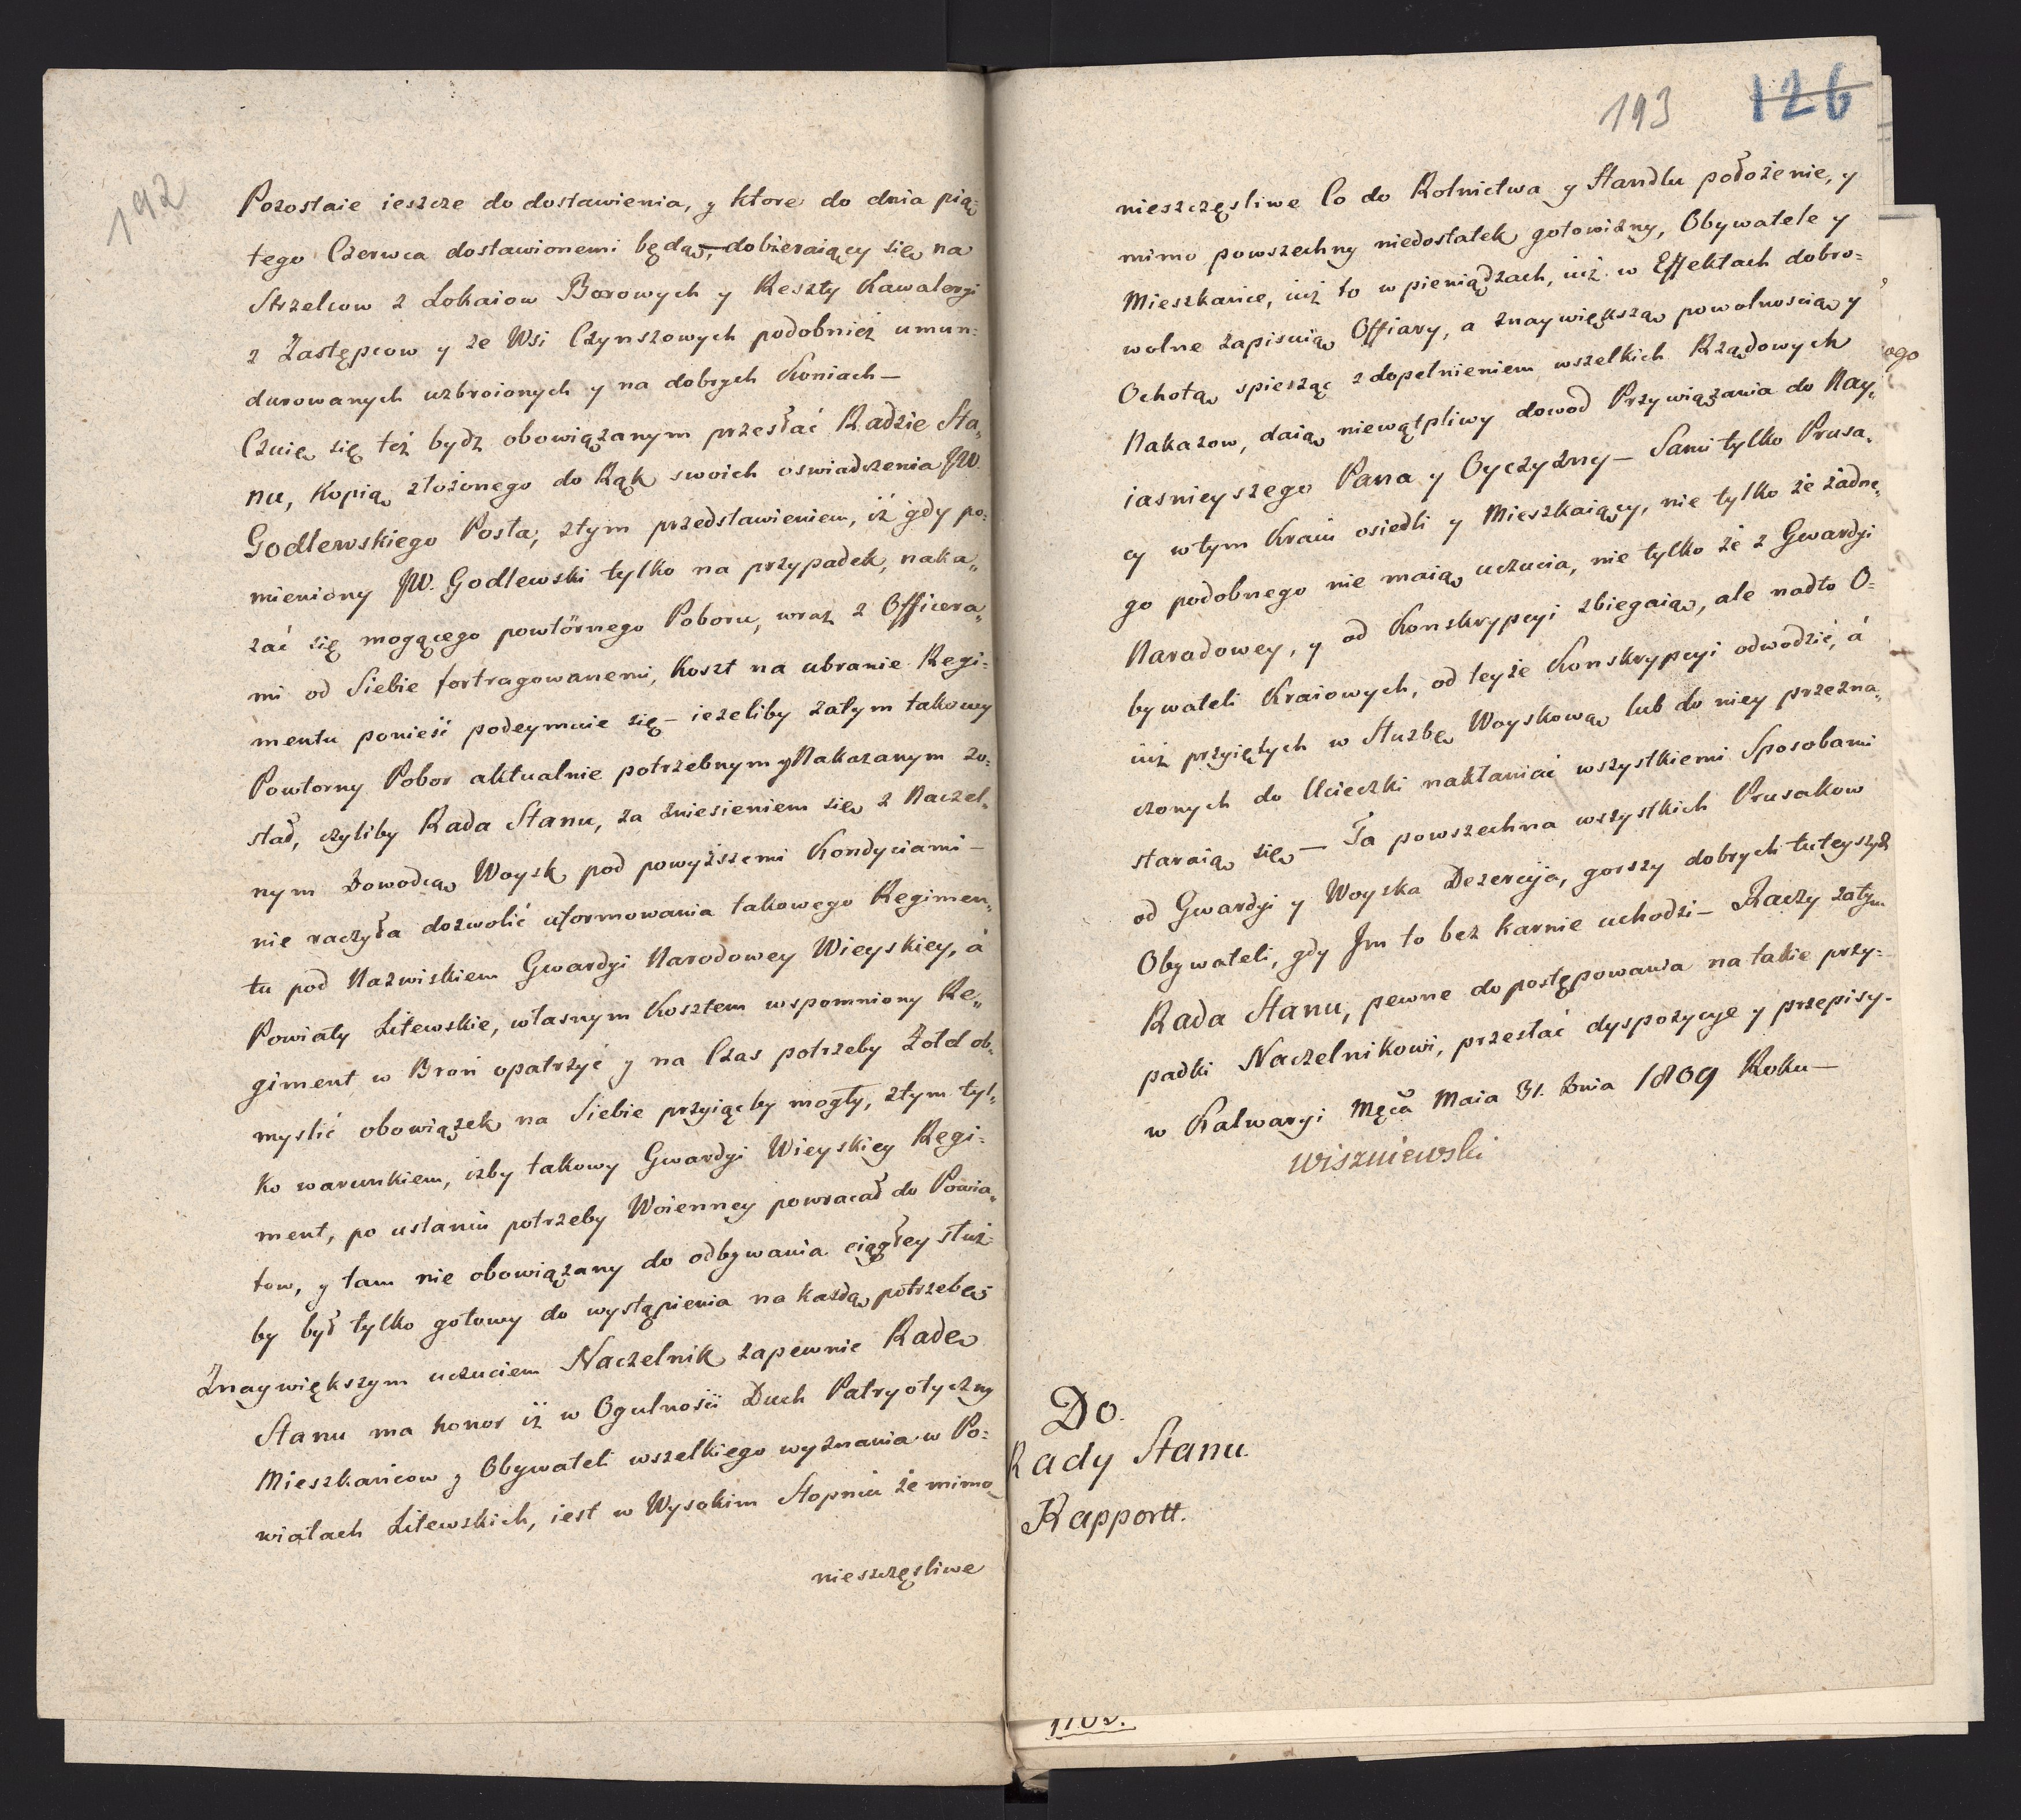 192
Pozostaie ieszcze do dostawienia, y ktore do dnia pią-
tego Czerwca dostawionemi będą, dobieraiący się na
Strzelcow z Lokaiow Borowych y Reszty Kawaleryi
z Zastępcow y ze Wsi Czynszowych podobnież umun-
durowanych uzbroionych y na dobrych Koniach —
Czuię się też bydz obowiązanym przesłać Radzie Sta„
nu, Kopią złożonego do Rąk swoich oswiadczenia JW.
Godlewskiego Posła, ztym przedstawieniem, iż gdy po-
mieniony JW. Godlewski tylko na przypadek, naka„
zać się mogącego powtórnego Poboru, wraz z Officera„
mi od Siebie fortragowanemi, Koszt na ubranie Regi-
mentu ponieść podeymuie się — ieżeliby zatym takowy
Powtorny Pobor aktualnie potrzebnym y Nakazanym zo-
stał, czyliby Rada Stanu, za zniesieniem się z Naczel„
nym Dowodcą Woysk pod powyższemi Kondyciami —
nie raczyła dozwolić uformowania takowego Regimen„
tu pod Nazwiskiem Gwardyi Narodowey Wieyskiey, á
Powiaty Litewskie, własnym Kosztem wspomniony Re„
giment w Broń opatrzyć y na Czas potrzeby Zołd ob„
myslić obowiązek na Siebie przyiąc by mogły, ztym tyl„
ko warunkiem, izby takowy Gwardyi Wieyskiey Regi-
ment, po ustaniu potrzeby Woienney powracał do Powia„
tow, y tam nie obowiązany do odbywania ciągłey służ-
by był tylko gotowy do wystąpienia na każdą potrzebę
Znaywiększym uczuciem Naczelnik zapewnie Radę
Stanu ma honor iż w Ogulności Duch Patryotyczny
Mieszkańcow y Obywateli wszelkiego wyznania w Po-
wiatach Litewskich, iest w Wysokim Stopniu że mimo
nieszczęsliwe
193 126
nieszczęsliwe Co do Rolnictwa y Handlu położenie, y
mimo powszechny niedostatek gotowizny, Obywatele y
Mieszkańce, iuż to w pieniądzach, iuż w Effektach dobro-
wolne zapisuią Offiary, a znaywiększą powolnością y
Ochotą spiesząc z dopełnieniem wszelkich Rządowych
Nakazow, daią niewątpliwy dowod Przywiązania do Nay„
iasnieyszego Pana y Oyczyzny — Sami tylko Prusa„
cy w tym Kraiu osiedli y Mieszkaiący, nie tylko że żadne„
go podobnego nie maią uczucia, nie tylko że z Gwardyi
Narodowey, y od Konskrypcyi zbiegaią, ale nadto O-
bywateli Kraiowych, od teyże Konskrypcyi odwodzić, á
iuż przyiętych w Służbę Woyskową lub do niey przezna„
czonych do Ucieczki nakłaniać wszystkiemi Sposobami
staraią się — Ta powszechna wszystkich Prusakow
od Gwardyi y Woyska Dezercyja, gorszy dobrych tuteyszych
Obywateli, gdy Jm to bez karnie uchodzi — Raczy zatym
Rada Stanu, pewne do postępowania na takie przy-
padki Naczelnikowi, przesłać dyspozycye y przepisy.
w Kalwaryi Męca Maia 31. Dnia 1809 Roku —
Wiszniewski
Do.
Rady Stanu.
Rapportt.
ogo